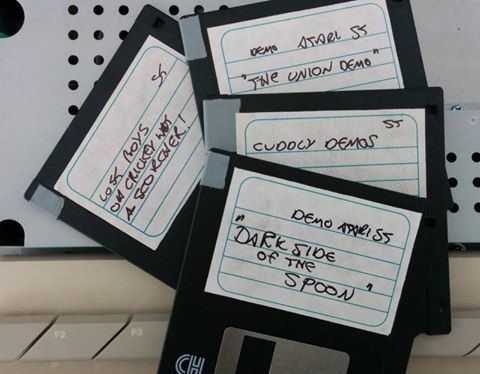 DEMO ATARI ST
"THE UNION DEMO"
ST
LOST BOYS
OH CRICKEY WOT
A SCORCHER!
ST
CUDDLY DEMOS
DEMO ATARI ST
"DARK SIDE
OF THE
SPOON"
F2
F3